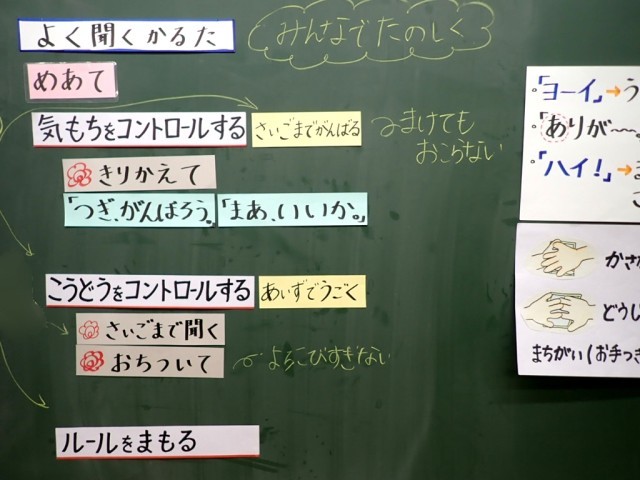 よく聞くかるた
みんなでたのしく
めあて
気もちをコントロールする
さいごまでがんばる
まけても
おこらない
きりかえて
「つぎ、がんばろう。」
「まあ、いいか。」
こうどうをコントロールする
あいずでうごく
さいごまで聞く
おちついて
よろこびすぎない
ルールをまもる
「ヨーイ」→う
「ありが〜〜。
「ハイ!」→ま
こ
かさね
どうし
まちがい(お手つき